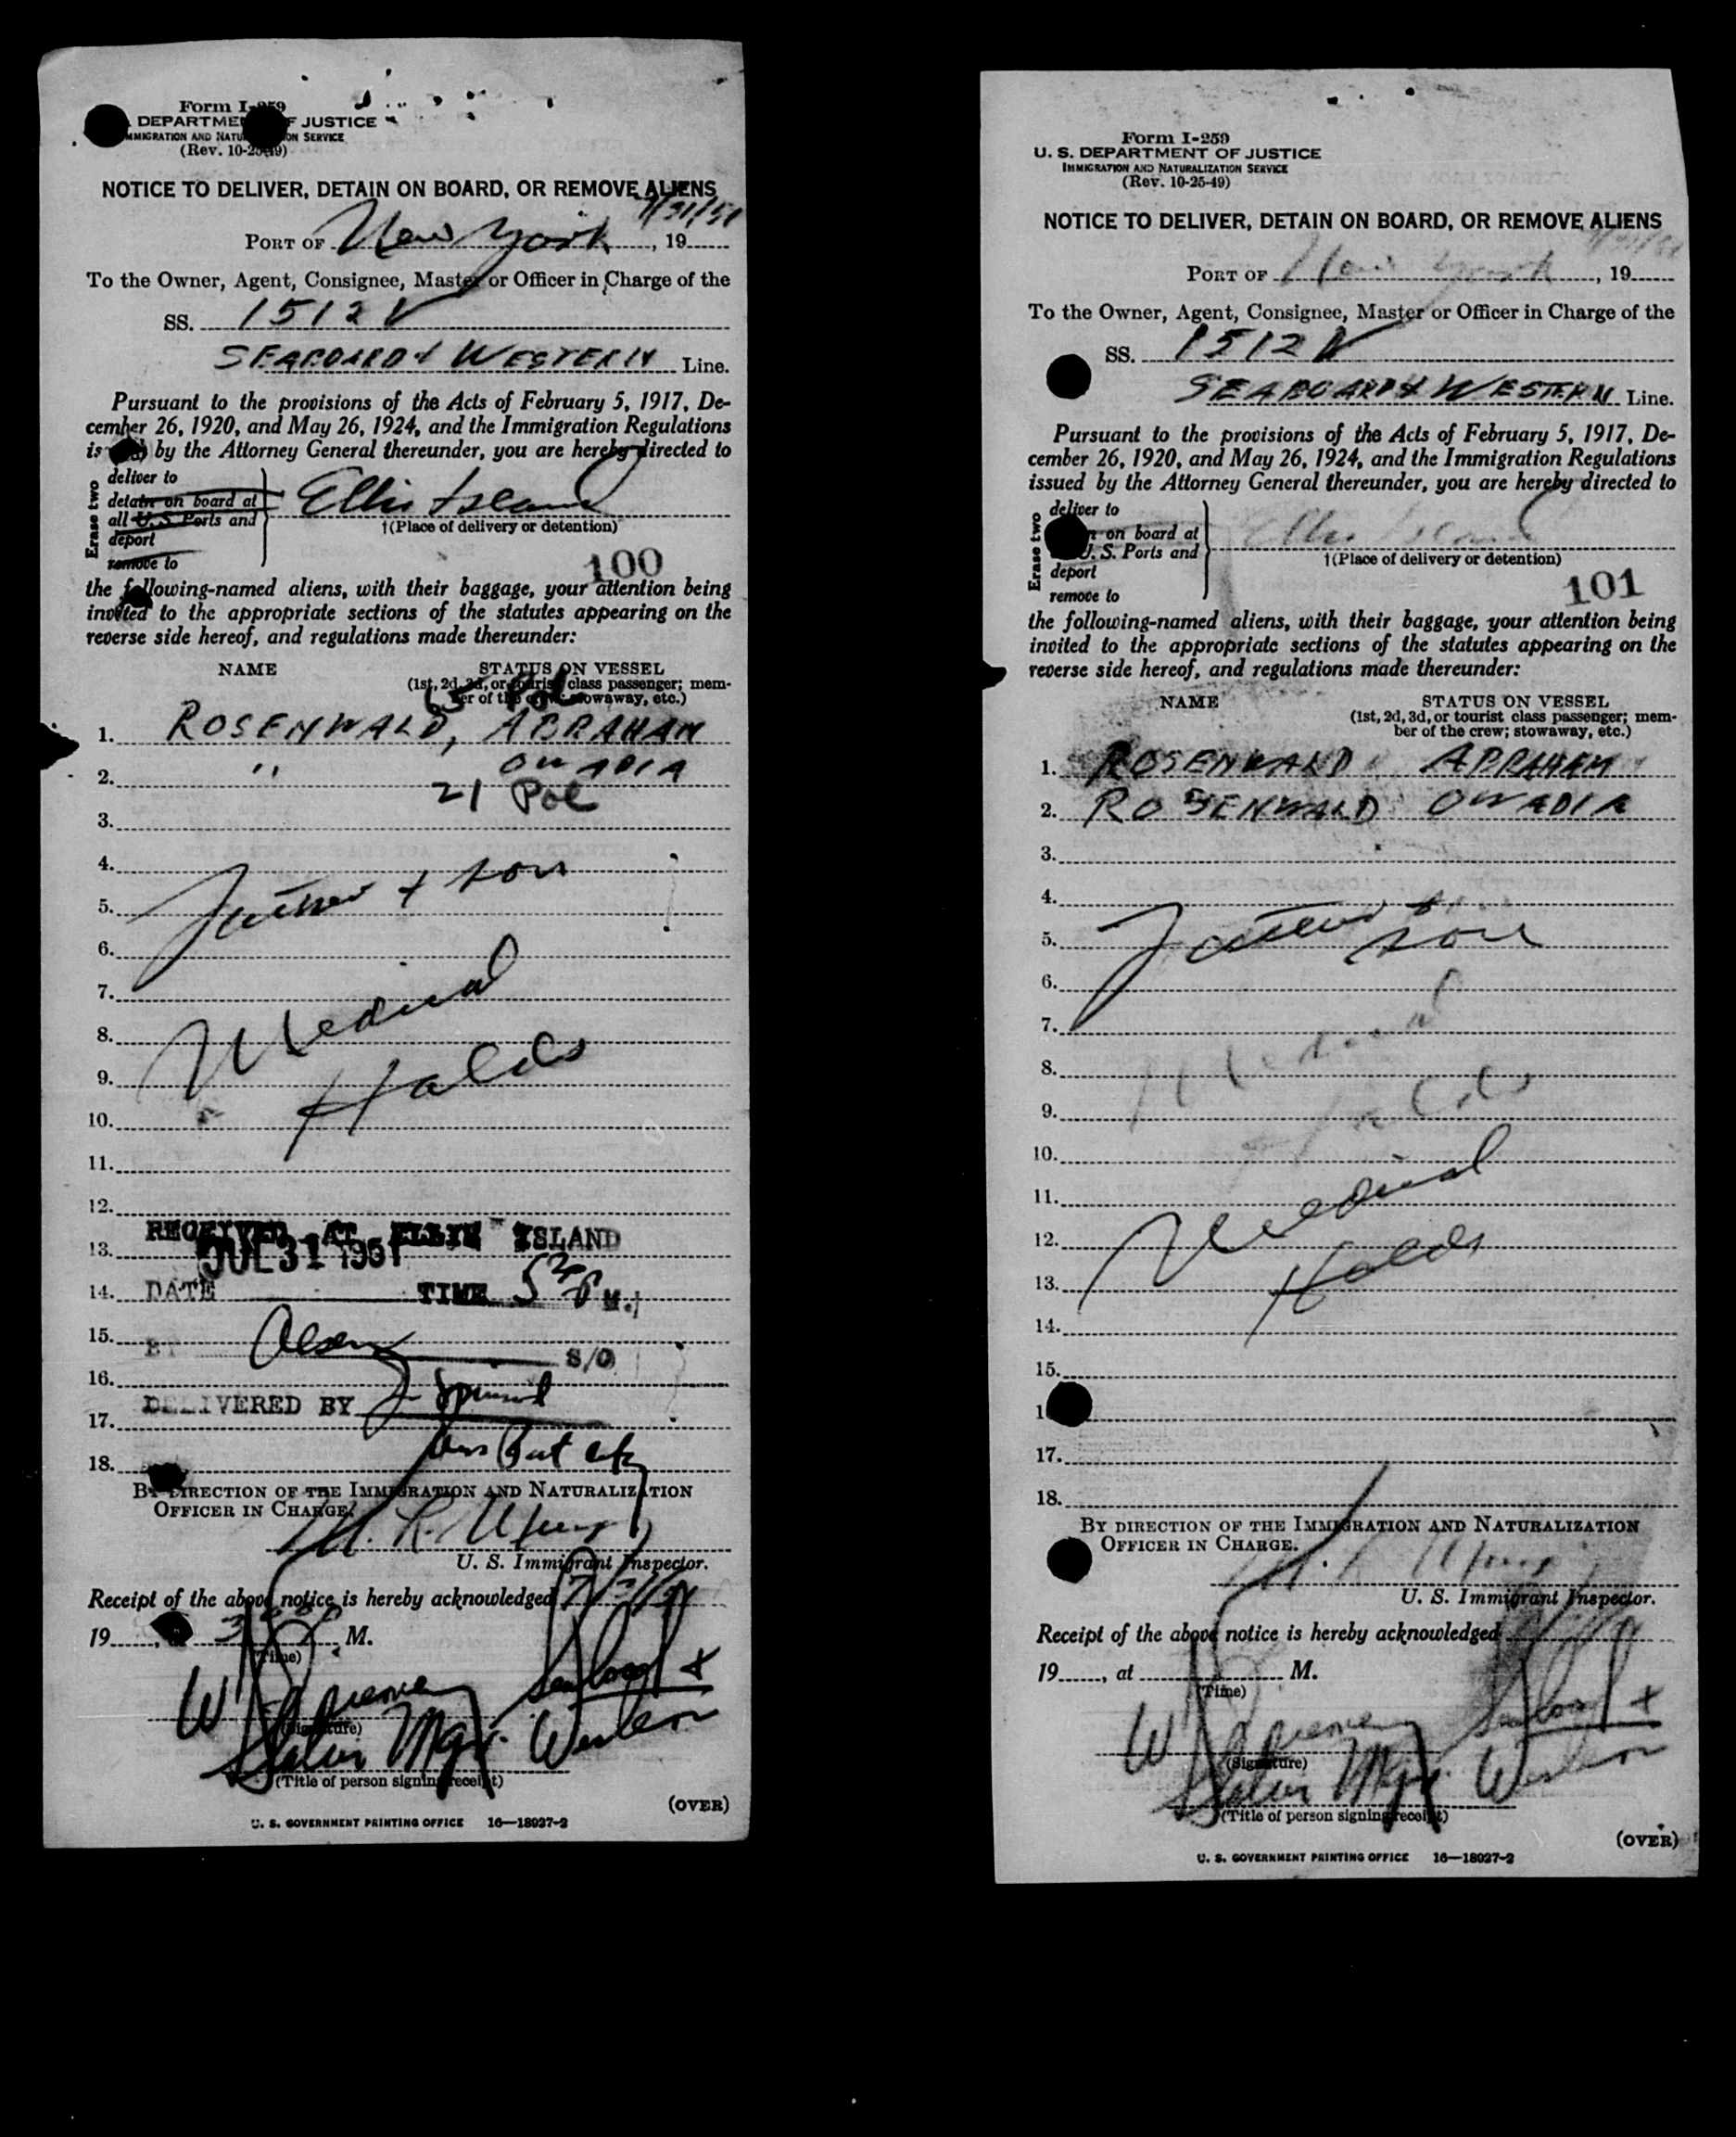 Form I-259
DEPARTMENT OF JUSTICE
IMMIGRATION AND NATURALIZATION SERVICE
(Rev. 10-25-49)
NOTICE TO DELIVER, DETAIN ON BOARD, OR REMOVE ALIENS
7/31/51
PORT OF New York, 19
To the Owner, Agent, Consignee, Master or Officer in Charge of the
SS. 1512 V
SEABOARD & WESTERN Line.
Pursuant to the provisions of the Acts of February 5, 1917, De-
cember 26, 1920, and May 26, 1924, and the Immigration Regulations
issued by the Attorney General thereunder, you are hereby directed to
Erase two
deliver to
detain on board at
all U. S. Ports and
deport
remove to
Ellis Island
†(Place of delivery or detention)
100
the following-named aliens, with their baggage, your attention being
invited to the appropriate sections of the statutes appearing on the
reverse side hereof, and regulations made thereunder:
NAME STATUS ON VESSEL
(1st, 2d, 3d, or tourist class passenger; mem-
ber of the crew; stowaway, etc.)
Pol
1. ROSENWALD, ABRAHAM
2. " OWADIA
21 Pol
3.
4.
Father + son
5.
6.
7.
Medical
8.
9.
Holds
10.
11.
12.
RECEIVED AT ELLIS ISLAND
13. JUL 31 1951
14. DATE TIME 5 30 P M.
15. BY Olsen S/O
16.
DELIVERED BY
17.
18.
BY DIRECTION OF THE IMMIGRATION AND NATURALIZATION
OFFICER IN CHARGE.
U. S. Immigrant Inspector.
Receipt of the above notice is hereby acknowledged 7/31/51
19, at M.
(Time)
Seaboard &
(Signature)
Station Mgr. Western
(Title of person signing receipt)
(OVER)
U. S. GOVERNMENT PRINTING OFFICE 16—18027-2
Form I-259
U. S. DEPARTMENT OF JUSTICE
IMMIGRATION AND NATURALIZATION SERVICE
(Rev. 10-25-49)
NOTICE TO DELIVER, DETAIN ON BOARD, OR REMOVE ALIENS
PORT OF New York, 19
To the Owner, Agent, Consignee, Master or Officer in Charge of the
SS. 1512 V
SEABOARD & WESTERN Line.
Pursuant to the provisions of the Acts of February 5, 1917, De-
cember 26, 1920, and May 26, 1924, and the Immigration Regulations
issued by the Attorney General thereunder, you are hereby directed to
Erase two
deliver to
on board at
U. S. Ports and
deport
remove to
Ellis Island
†(Place of delivery or detention)
101
the following-named aliens, with their baggage, your attention being
invited to the appropriate sections of the statutes appearing on the
reverse side hereof, and regulations made thereunder:
NAME STATUS ON VESSEL
(1st, 2d, 3d, or tourist class passenger; mem-
ber of the crew; stowaway, etc.)
1. ROSENWALD ABRAHAM
2. ROSENWALD OWADIA
3.
4.
Father +
5. son
6.
7. Medical
8.
9. Holds
10.
11. Medical
12.
13. Holds
14.
15.
17.
18.
BY DIRECTION OF THE IMMIGRATION AND NATURALIZATION
OFFICER IN CHARGE.
U. S. Immigrant Inspector.
Receipt of the above notice is hereby acknowledged
19, at M.
(Time)
Seaboard +
(Signature)
Station Mgr. Western
(Title of person signing receipt)
(OVER)
U. S. GOVERNMENT PRINTING OFFICE 16—18027-2